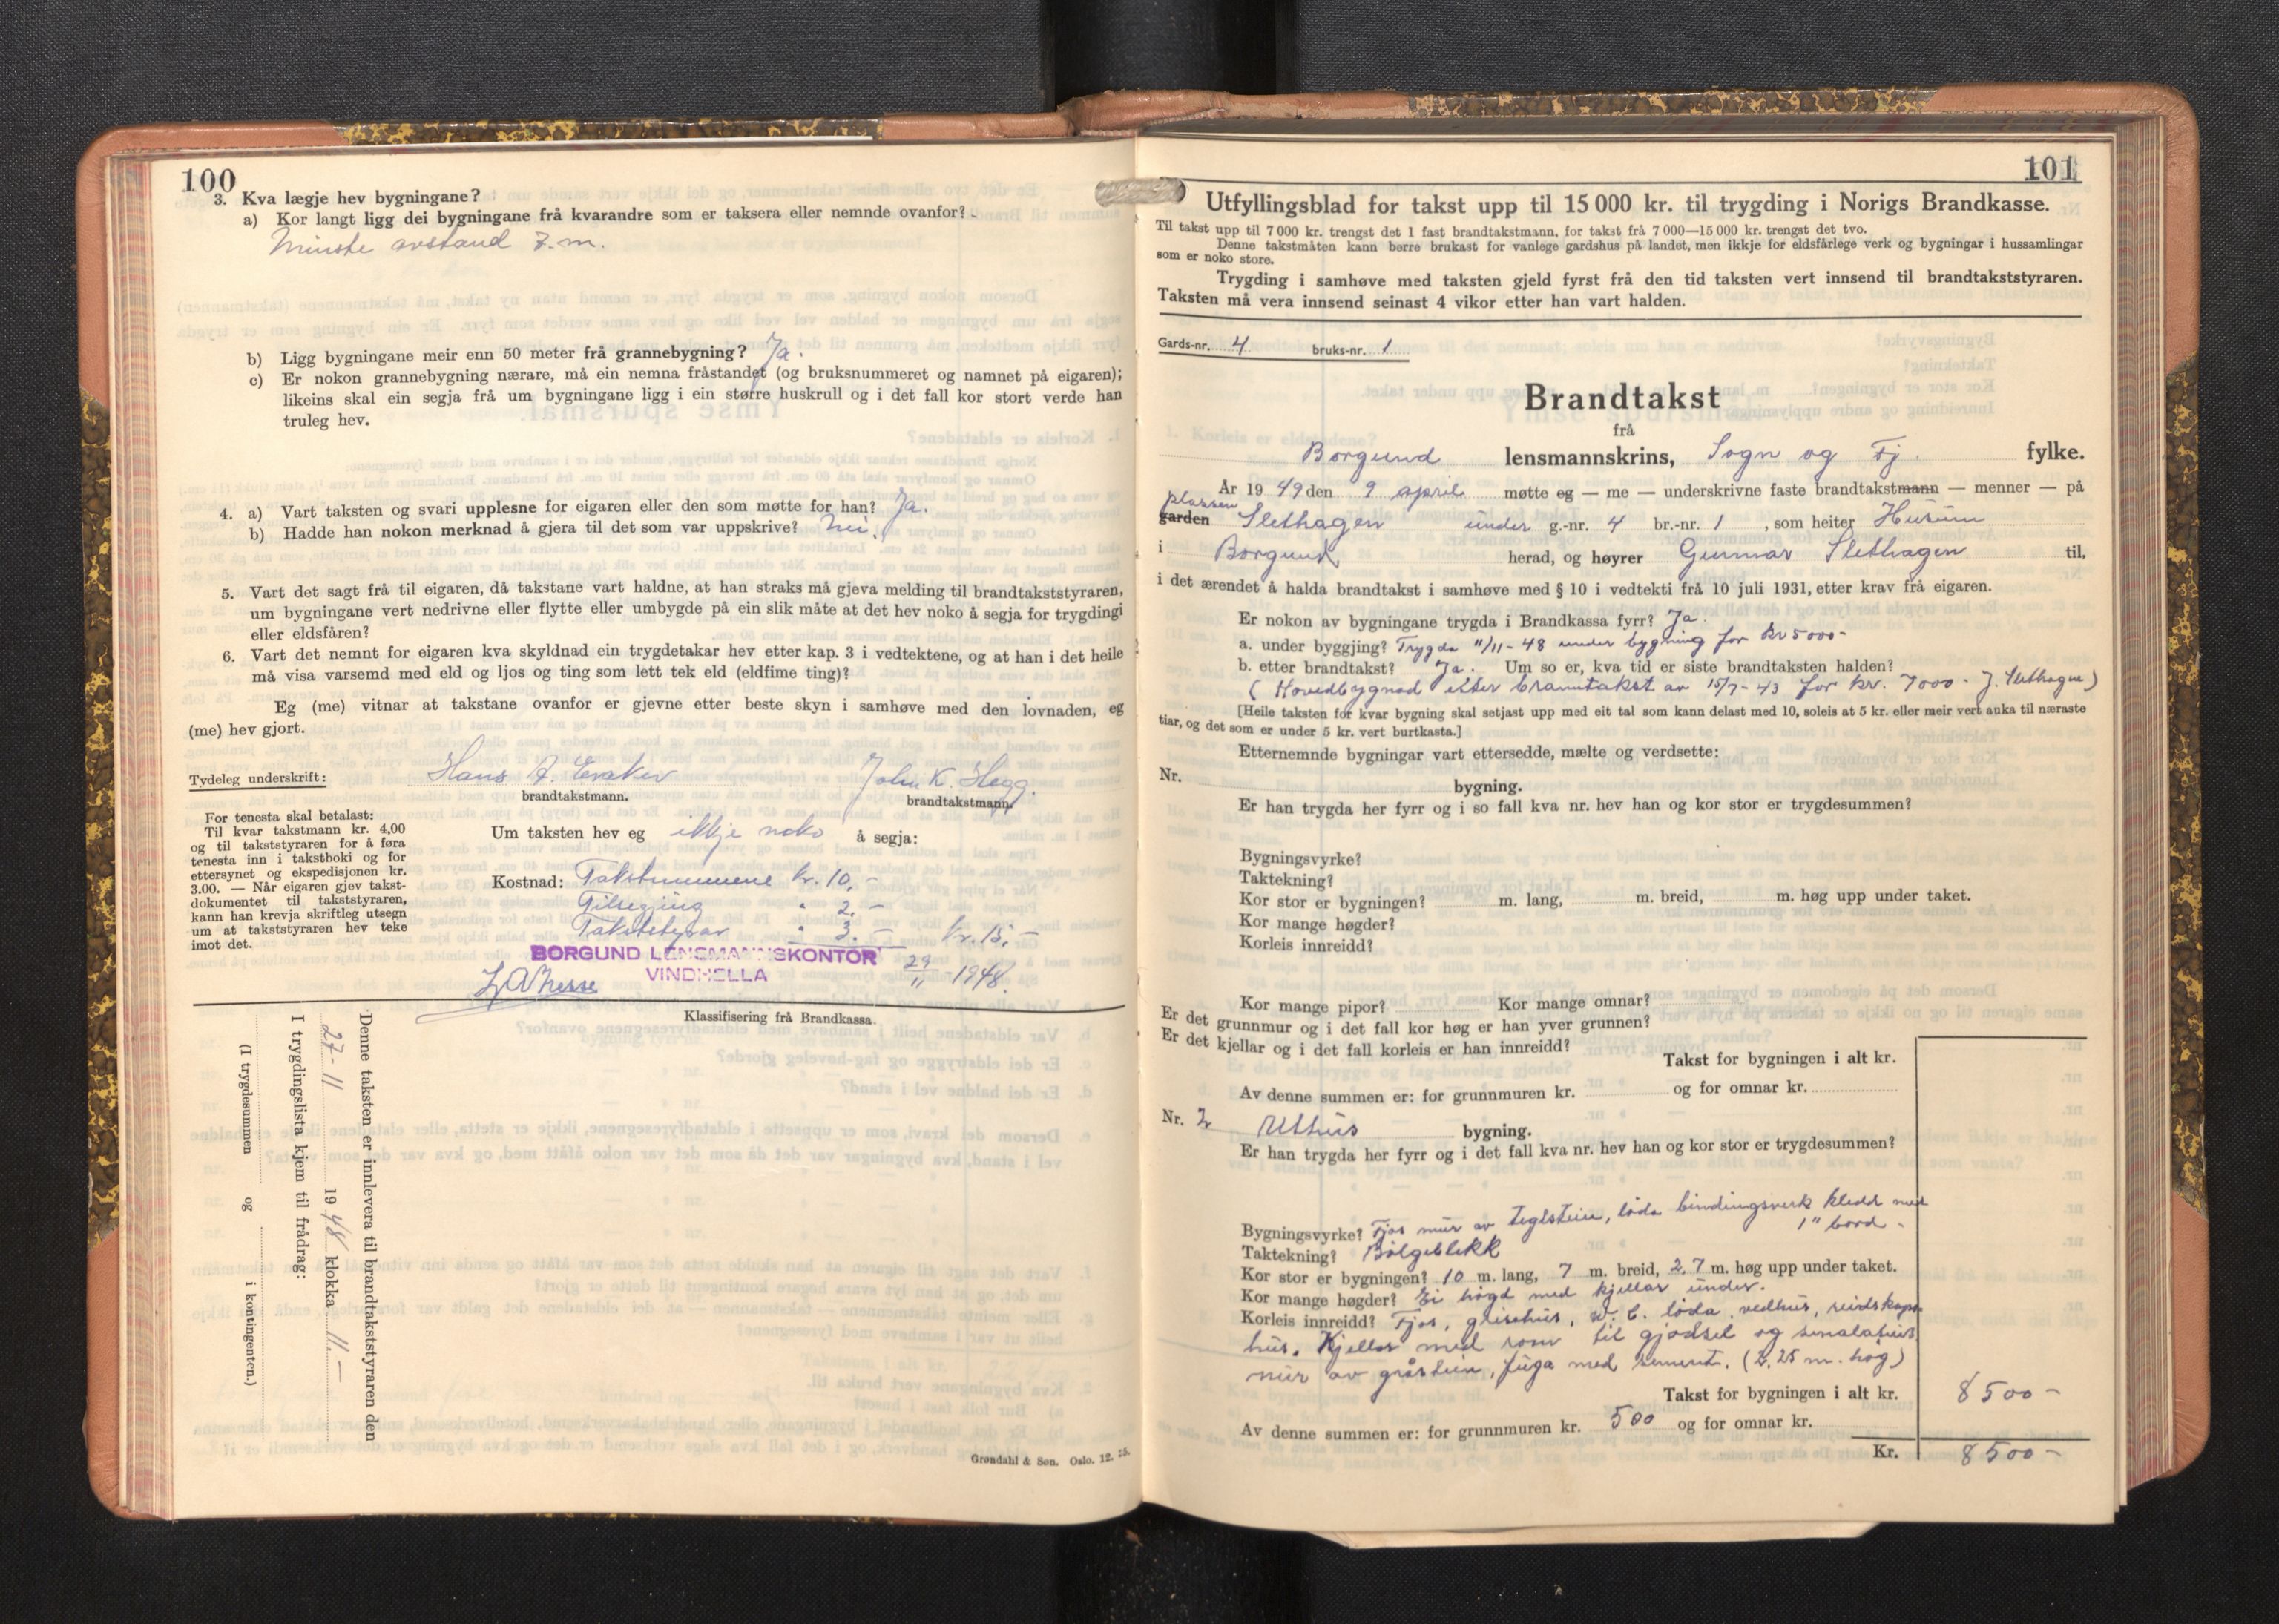 100
3. Kva lægje hev bygningane?
a) Kor langt ligg dei bygningane frå kvarandre som er taksera eller nemnde ovanfor?
Minste avstand 7. m.
b) Ligg bygningane meir enn 50 meter frå grannebygning? Ja.
c) Er nokon grannebygning nærare, må ein nemna fråstandet (og bruksnummeret og namnet på eigaren);
likeins skal ein segja frå um bygningane ligg i ein større huskrull og i det fall kor stort verde han
truleg hev.
4. a) Vart taksten og svari upplesne for eigaren eller den som møtte for han? Ja.
b) Hadde han nokon merknad å gjera til det som var uppskrive? Nei.
5. Vart det sagt frå til eigaren, då takstane vart haldne, at han straks må gjeva melding til brandtakststyraren,
um bygningane vert nedrivne eller flytte eller umbygde på ein slik måte at det hev noko å segja for trygdingi
eller eldsfåren?
6. Vart det nemnt for eigaren kva skyldnad ein trygdetakar hev etter kap. 3 i vedtektene, og at han i det heile
må visa varsemd med eld og ljos og ting som lett tek eld (eldfime ting)?
Eg (me) vitnar at takstane ovanfor er gjevne etter beste skyn i samhøve med den lovnaden, eg
(me) hev gjort.
Tydeleg underskrift: Hans A. John K. Hegg.
brandtakstmann. brandtakstmann.
For tenesta skal betalast:
Til kvar takstmann kr. 4,00
og til takststyraren for å føra
tenesta inn i takstboki og for
ettersynet og ekspedisjonen kr.
3.00. — Når eigaren gjev takst-
dokumentet til takststyraren,
kann han krevja skriftleg utsegn
um at takststyraren hev teke
imot det.
Um taksten hev eg ikkje noko å segja:
Kostnad: Takstmennene kr. 10,-
Tilsegjing " 2.-
Takststyrar " 3.- kr. 15,-
BORGUND LENSMANNSKONTOR
VINDHELLA
29/11 1948.
Klassifisering frå Brandkassa.
Denne taksten er innlevera til brandtakststyraren den
27-11 1948 klokka 11.-
I trygdingslista kjem til frådrag:
(I trygdesummen og i kontingenten.)
Grøndahl & Søn. Oslo. 12.
101
Utfyllingsblad for takst upp til 15 000 kr. til trygding i Norigs Brandkasse.
Til takst upp til 7 000 kr. trengst det 1 fast brandtakstmann, for takst frå 7 000—15 000 kr. trengst det tvo.
Denne takstmåten kann berre brukast for vanlege gardshus på landet, men ikkje for eldsfårlege verk og bygningar i hussamlingar
som er noko store.
Trygding i samhøve med taksten gjeld fyrst frå den tid taksten vert innsend til brandtakststyraren.
Taksten må vera innsend seinast 4 vikor etter han vart halden.
Gards-nr. 4 bruks-nr. 1
Brandtakst
frå
Borgund lensmannskrins, Sogn og Fj. fylke.
År 1949 den 9 april møtte eg — me — underskrivne faste brandtakstmann — menner — på
plassen
garden Slethagen under g.-nr. 4 br.-nr. 1, som heiter Husum
i Borgund herad, og høyrer Gunnar Slethagen til,
i det ærendet å halda brandtakst i samhøve med § 10 i vedtekti frå 10 juli 1931, etter krav frå eigaren.
Er nokon av bygningane trygda i Brandkassa fyrr? Ja.
a. under byggjing? Trygda 11/11-48 under bygning for kr 5000-
b. etter brandtakst? Ja. Um so er, kva tid er siste brandtaksten halden?
(Hovedbygnad etter branntakst av 15/7-43 for kr. 7000 - J. Slethagen)
[Heile taksten for kvar bygning skal setjast upp med eit tal som kann delast med 10, soleis at 5 kr. eller meir vert auka til næraste
tiar, og det som er under 5 kr. vert burtkasta.]
Etternemnde bygningar vart ettersedde, mælte og verdsette:
Nr. bygning.
Er han trygda her fyrr og i so fall kva nr. hev han og kor stor er trygdesummen?
Bygningsvyrke?
Taktekning?
Kor stor er bygningen? m. lang, m. breid, m. høg upp under taket.
Kor mange høgder?
Korleis innreidd?
Kor mange pipor? Kor mange omnar?
Er det grunnmur og i det fall kor høg er han yver grunnen?
Er det kjellar og i det fall korleis er han innreidd?
Takst for bygningen i alt kr.
Av denne summen er: for grunnmuren kr. og for omnar kr.
Nr. 2 Uthus bygning.
Er han trygda her fyrr og i det fall kva nr. hev han og kor stor er trygdesummen?
Bygningsvyrke? Fjos mur av teglstein, løda bindingsverk kledd med
1" bord -
Taktekning? Bølgeblekk
Kor stor er bygningen? 10 m. lang, 7 m. breid, 2,7 m. høg upp under taket.
Kor mange høgder? Ei høgd med kjellar under.
Korleis innreidd? Fjos, grisehus, W. C. løda, vedhus, reidskaps-
hus. Kjellar med rom til gjødsel og
mur av gråstein, fuga med sement. (2,25 m. høg)
Takst for bygningen i alt kr. 8500-
Av denne summen er: for grunnmuren kr. 500 og for omnar kr.
Kr. 8500-